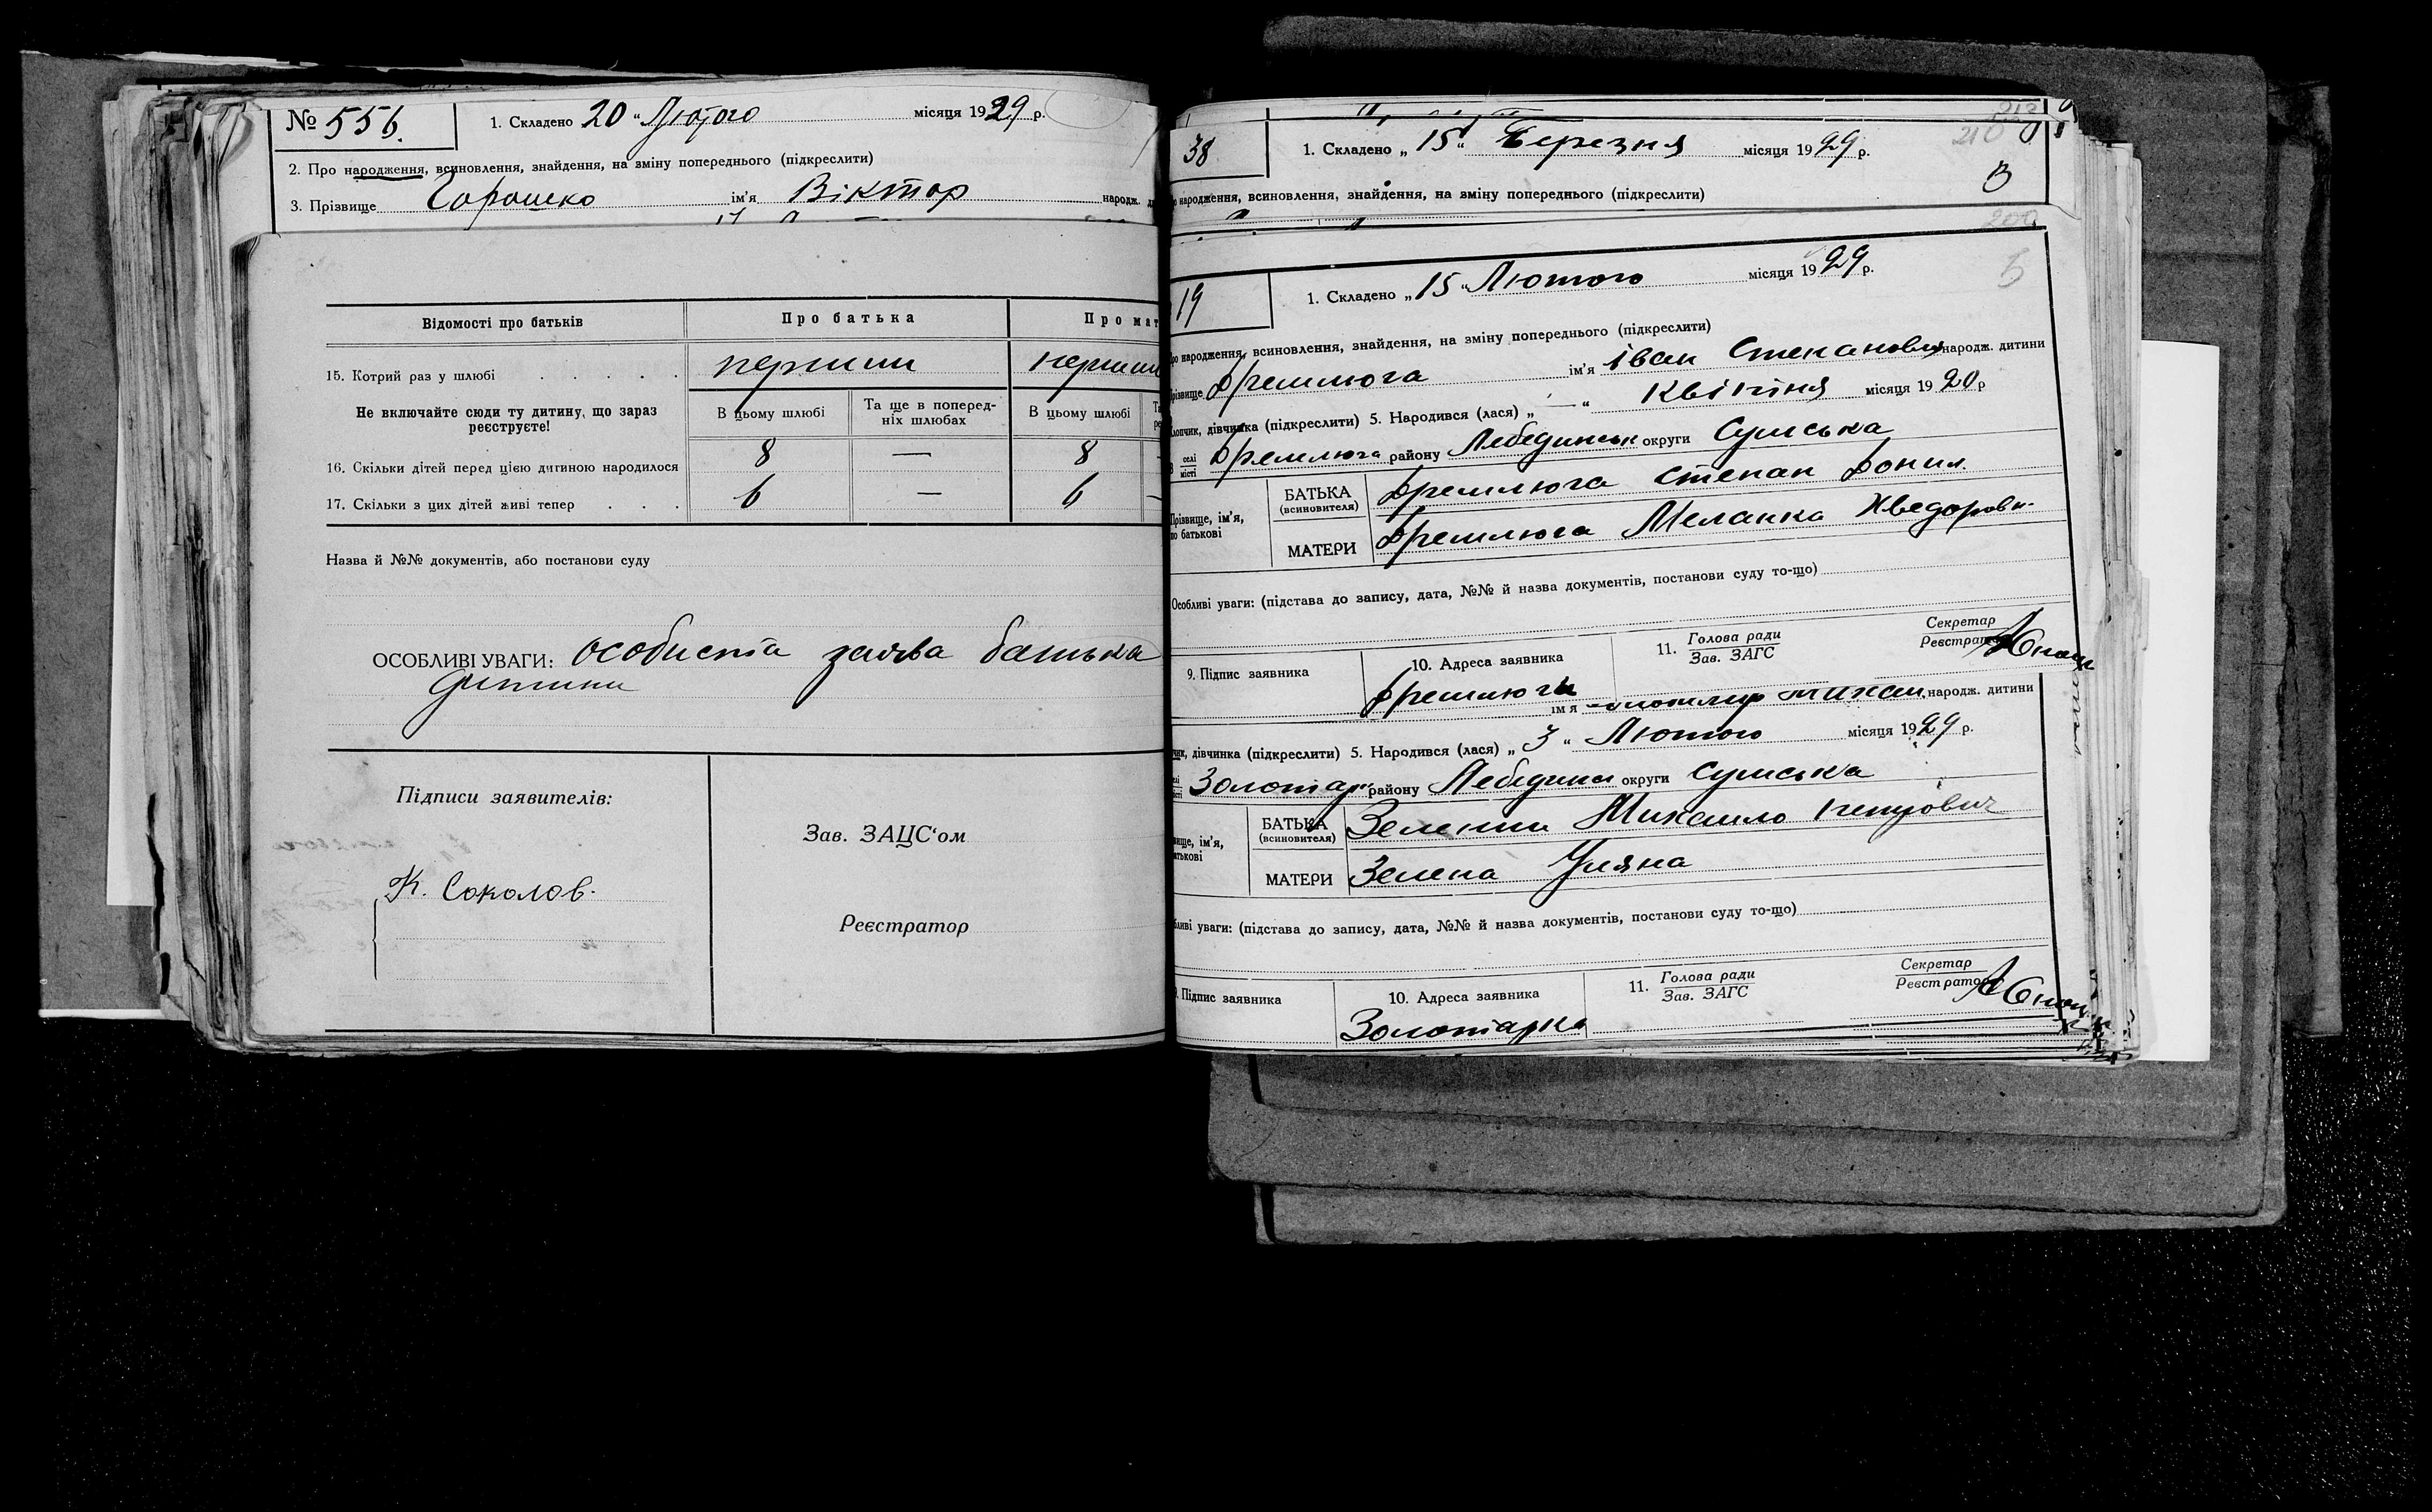 № 556. 1. Складено 20 "Лютого місяця 1929 р.
2. Про народження, всиновлення, знайдення, на зміну попереднього (підкреслити)
3. Прізвище Горошко ім'я Віктор народж.
Відомості про батьків Про батька Про мат
15. Котрий раз у шлюбі . . . . . перший перший
Не включайте сюди ту дитину, що зараз реєструєте!
В цьому шлюбі Та ще в поперед-ніх шлюбах В цьому шлюбі
16. Скільки дітей перед цією дитиною народилося 8 — 8
17. Скільки з цих дітей живі тепер . . . . 6 — 6
Назва й №№ документів, або постанови суду
ОСОБЛИВІ УВАГИ: особиста заява батька
дитини
Підписи заявителів:
Зав. ЗАЦС'ом
К. Соколов.
Реєстратор
213
38 1. Складено „15" Березня місяця 1929 р. 210
народження, всиновлення, знайдення, на зміну попереднього (підкреслити) В
200
19 1. Складено „15 "Лютого місяця 1929 р. Б
народження, всиновлення, знайдення, на зміну попереднього (підкреслити)
ізвище Дремлюга ім'я Іван Степанович народж. дитини
лопчик, дівчинка (підкреслити) 5. Народився (лася) „ — " Квітня місяця 1920 р
В селі місті Дремлюга району Лебединськ округи Сумська
Прізвище, ім'я, по батькові
БАТЬКА (всиновителя) Дремлюга Степан
МАТЕРИ Дремлюга Меланка Хведоровн.
Особливі уваги: (підстава до запису, дата, №№ й назва документів, постанови суду то-що)
9. Підпис заявника 10. Адреса заявника 11. Голова ради Зав. ЗАГС Секретар Реєстратор
Дремлюга
ім'я народж. дитини
чик, дівчинка (підкреслити) 5. Народився (лася) „ 3 " Лютого місяця 1929 р.
Золотар району Лебединс округи Сумська
вище, ім'я, атькові
БАТЬКА (всиновителя) Зелений Михайло
МАТЕРИ Зелена Уляна
бливі уваги: (підстава до запису, дата, №№ й назва документів, постанови суду то-що)
9. Підпис заявника 10. Адреса заявника 11. Голова ради Зав. ЗАГС Секретар Реєстратор
Золотарка